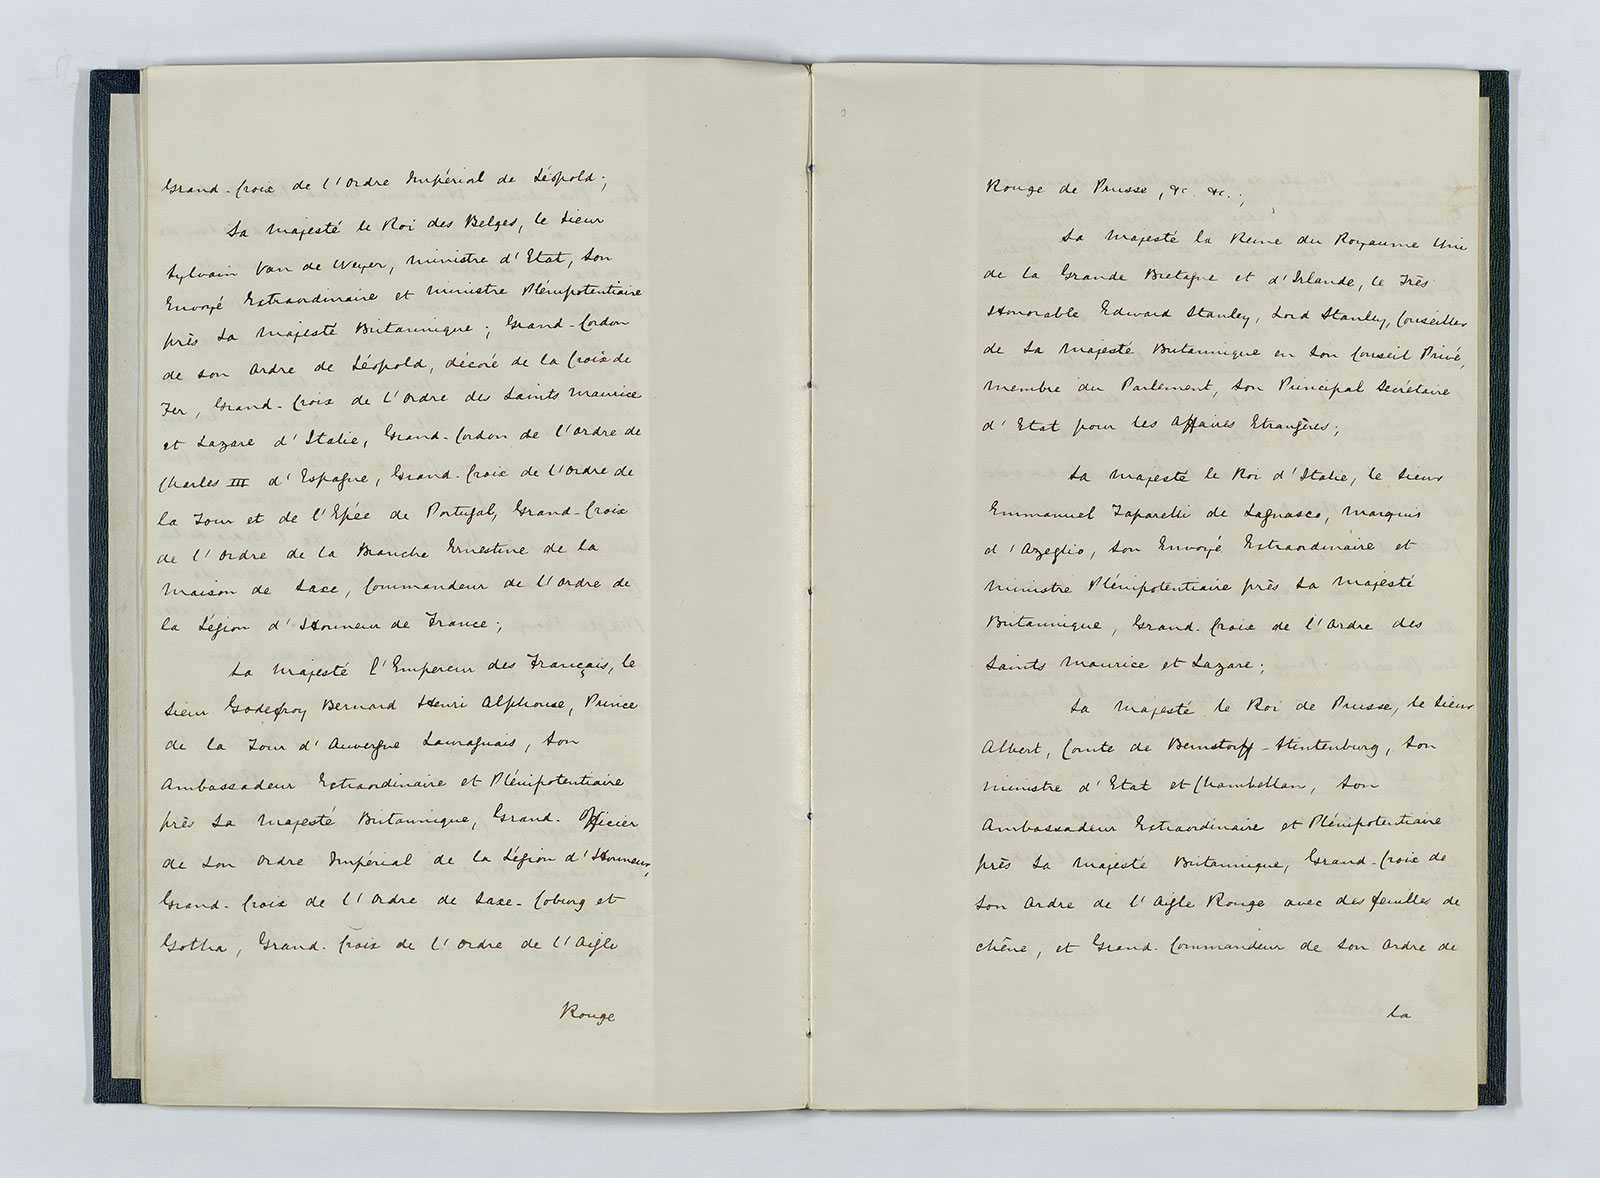 Grand-Croix de l'Ordre Impérial de Léopold;
Sa Majesté le Roi des Belges, le Sieur
Sylvain Van de Weyer, Ministre d'Etat, Son
Envoyé Extraordinaire et Ministre Plénipotentiaire
près Sa Majesté Britannique; Grand-Cordon
de son Ordre de Léopold, décoré de la Croix de
Fer, Grand-Croix de l'Ordre des Saints Maurice
et Lazare d'Italie, Grand-Cordon de l'Ordre de
Charles III d'Espagne, Grand-Croix de l'Ordre de
la Tour et de l'Epée de Portugal, Grand-Croix
de l'Ordre de la Branche Ernestine de la
Maison de Saxe, Commandeur de l'Ordre de
la Légion d'Honneur de France;
Sa Majesté l'Empereur des Français, le
Sieur Godefroy Bernard Henri Alphonse, Prince
de la Tour d'Auvergne Lauraguais, Son
Ambassadeur Extraordinaire et Plénipotentiaire
près Sa Majesté Britannique, Grand-Officier
de Son Ordre Impérial de la Légion d'Honneur,
Grand-Croix de l'Ordre de Saxe-Coburg et
Gotha, Grand-Croix de l'Ordre de l'Aigle
Rouge
Rouge de Prusse, &c. &c.;
Sa Majesté la Reine du Royaume Uni
de la Grande Bretagne et d'Irlande, le Très
Honorable Edward Stanley, Lord Stanley, Conseiller
de Sa Majesté Britannique en Son Conseil Privé,
Membre du Parlement, Son Principal Secrétaire
d'Etat pour les Affaires Etrangères;
Sa Majesté le Roi d'Italie, le Sieur
Emmanuel Taparelli de Lagnasco, Marquis
d'Azeglio, Son Envoyé Extraordinaire et
Ministre Plénipotentiaire près Sa Majesté
Britannique, Grand-Croix de l'Ordre des
Saints Maurice et Lazare;
Sa Majesté le Roi de Prusse, le Sieur
Albert, Comte de Bernstorff-Stintenburg, Son
Ministre d'Etat et Chambellan, Son
Ambassadeur Extraordinaire et Plénipotentiaire
près Sa Majesté Britannique, Grand-Croix de
Son Ordre de l'Aigle Rouge avec des feuilles de
chêne, et Grand-Commandeur de Son Ordre de
la